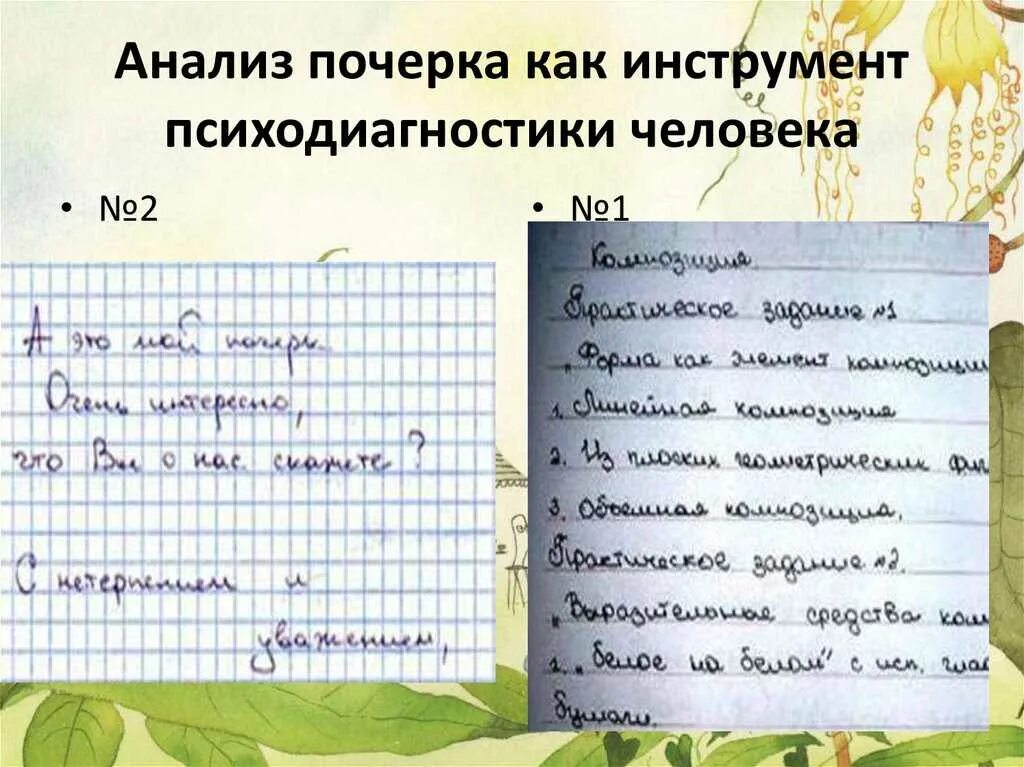 Анализ почерка как инструмент
психодиагностики человека
• №2
А это мой почерк.
Очень интересно,
что Вы о нас скажете?
С нетерпением и
уважением,
• №1
Композиция.
Практическое задание №1
„Форма как элемент композиции
1. Линейная композиция
2. Из плоских геометрических фиг
3. Объемная композиция.
Практическое задание №2.
„Выразительные средства ком
1. „белое на белом" с исп. глас
бумаги.